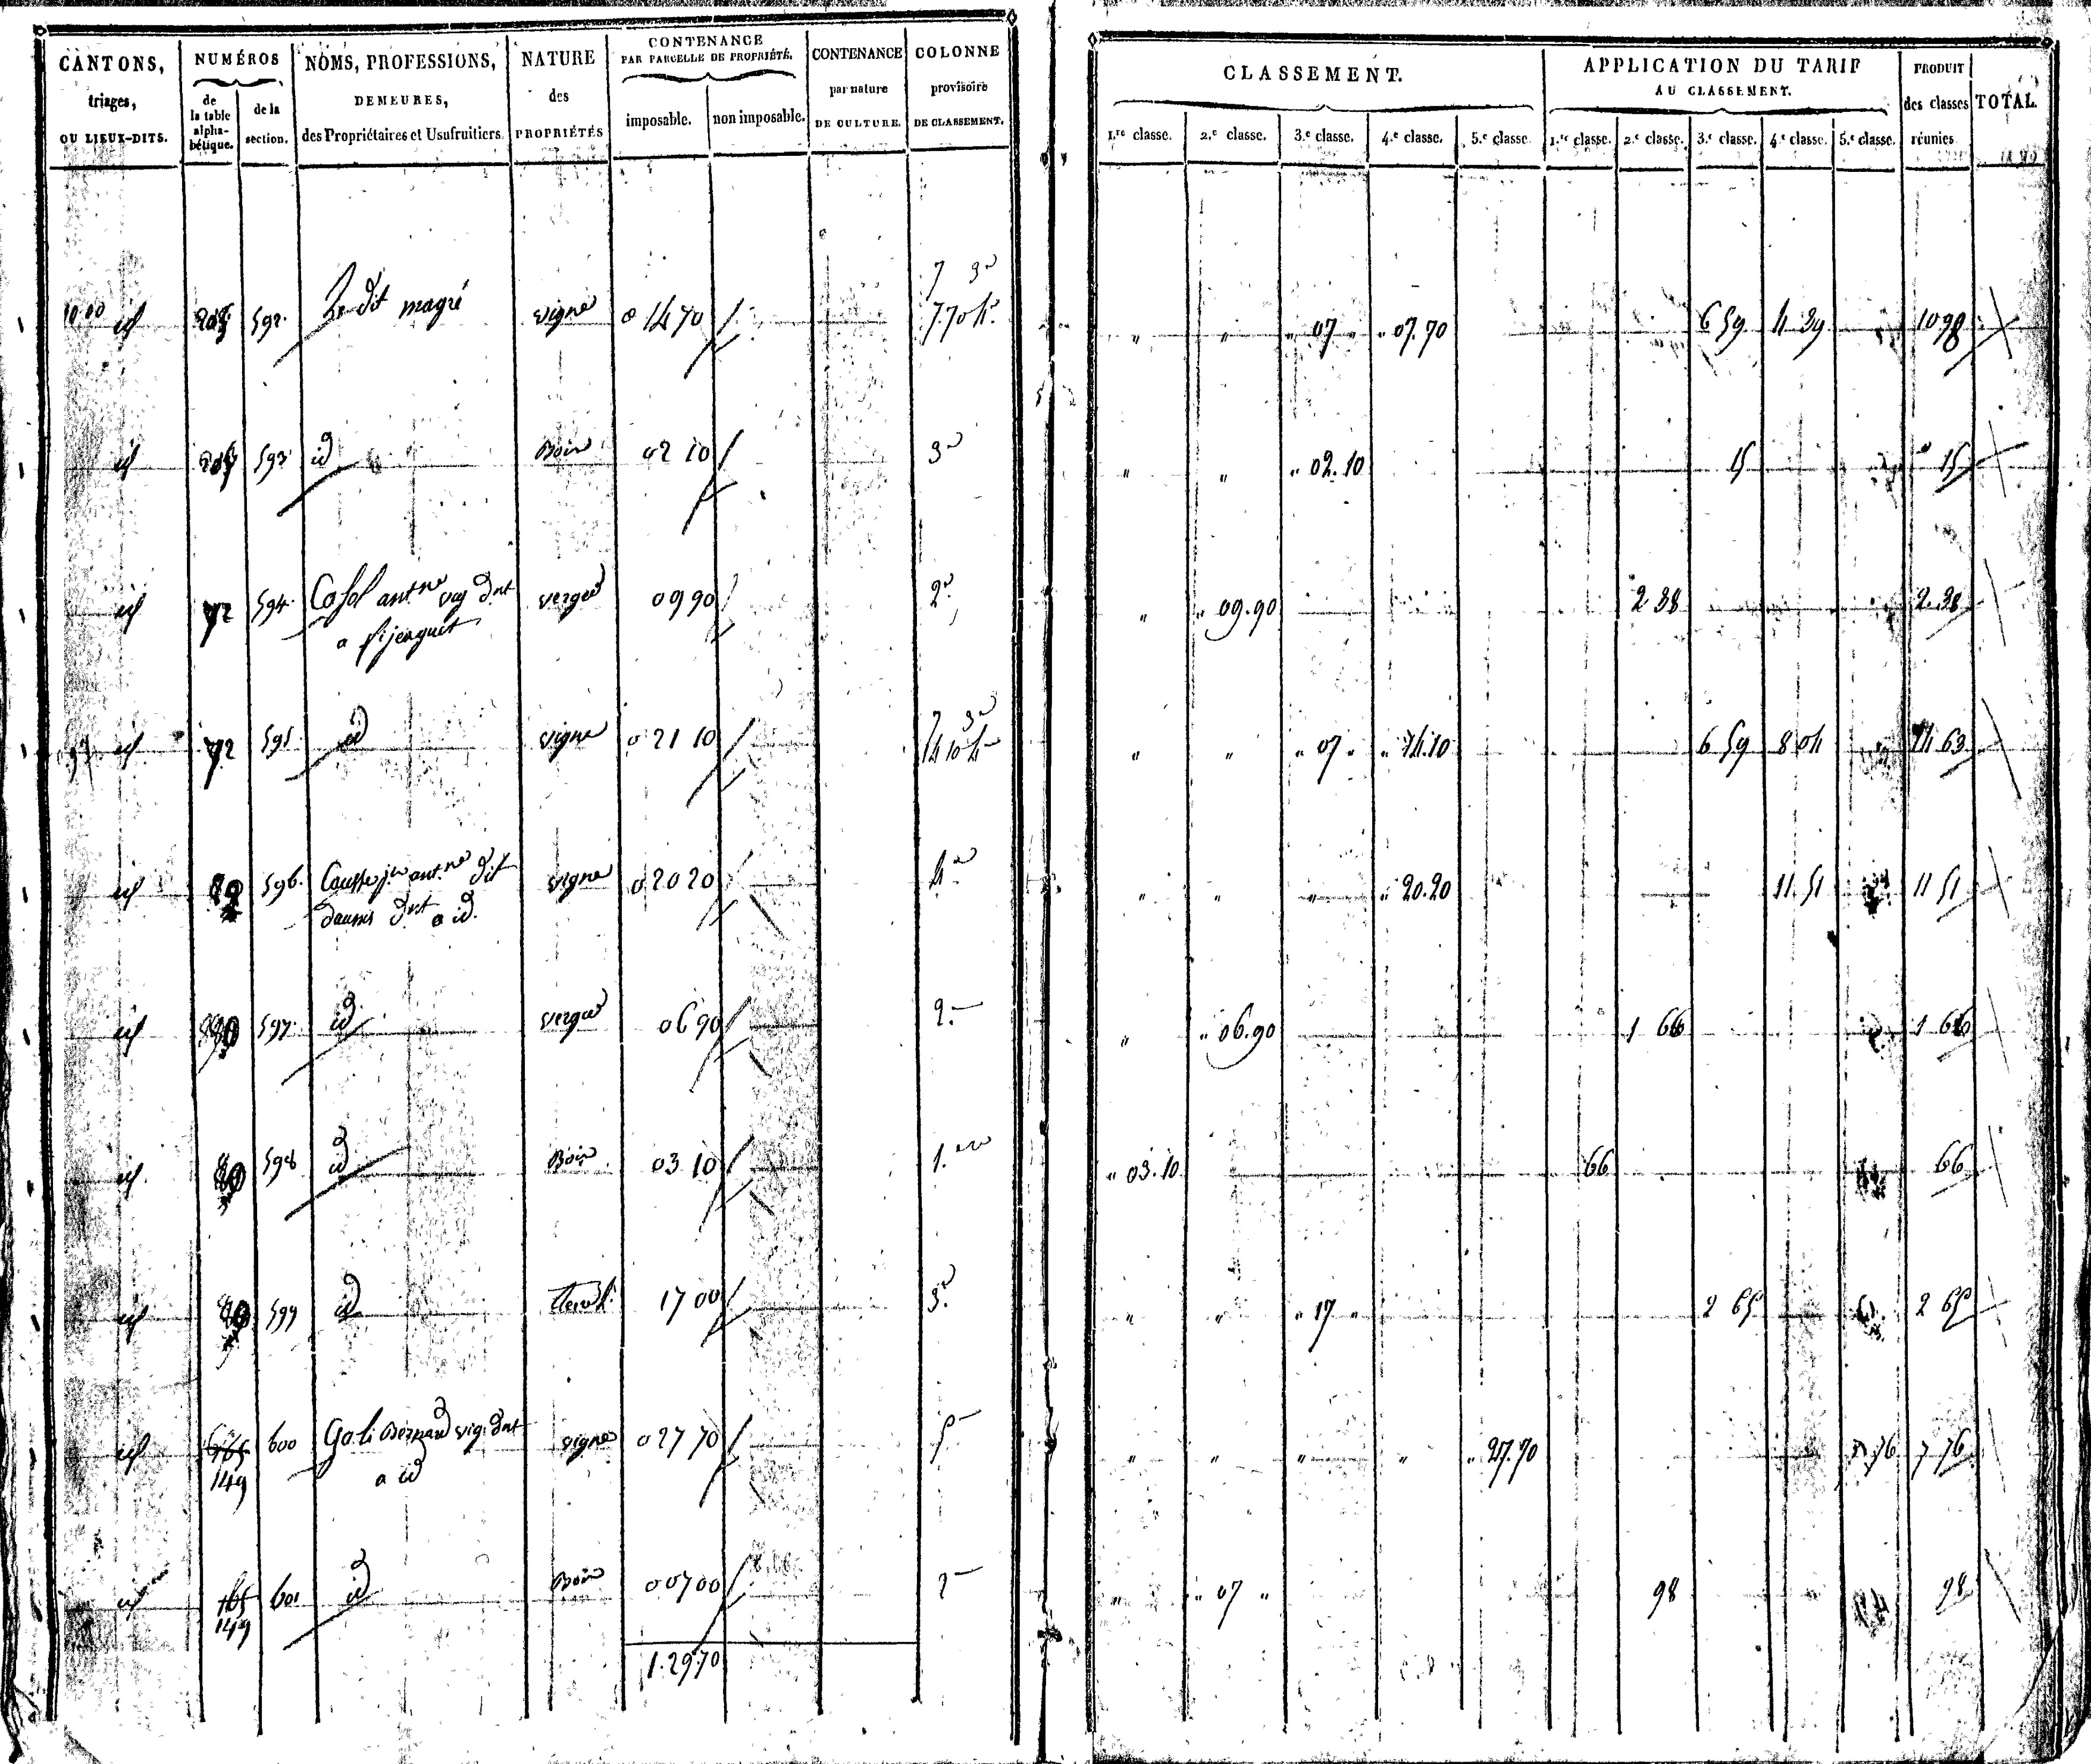 CANTONS, triages, OU LIEUX-DITS.
NUMÉROS
de la table alpha-bétique.
de la section.
NOMS, PROFESSIONS, DEMEURES, des Propriétaires et Usufruitiers.
NATURE des PROPRIÉTÉS
CONTENANCE PAR PARCELLE DE PROPRIÉTÉ.
imposable. non imposable.
CONTENANCE par nature DE CULTURE.
COLONNE provisoire DE CLASSEMENT.
CLASSEMENT.
1.re classe. 2.e classe. 3.e classe. 4.e classe. 5.e classe
APPLICATION DU TARIF AU CLASSEMENT.
1.re classe. 2.e classe. 3.e classe. 4.e classe. 5.e classe.
PRODUIT des classes réunies
TOTAL.
7 3e
id 592. Le dit magré vigne 0 14 70 7.70 4e " " " 07 " " 07.70 6 59 4 39 10 98
id 593 id Bois 02 10 3e " " " 02.10 15 15
id 72 594 antne dnt verger 09 90 2e " " 09.90 2 38 2.38
a
7 3e
id 72 595 id vigne 0 21 10 14 10 4e " " " 07 " " 14.10 6 59 8 04 14 63
id 596. antne dit vigne 0 20 20 4e " " " " 20.20 11.51 11 51
dnt a id.
id 597 id verger 06 90 2. " " 06.90 1 66 1 66
id 80 598 id Bois 03 10 1.ere " 03.10 66 66
id 80 599 id 17 00 3e " " " 17 " 2 65 2 65
id 165 600 Gali Bernard vig. dnt vigne 0 27 70 5 " " " " " 27.70 7.76 7 76
149 a id
id 165 601 id Bois 0 07 00 2 " " 07 " 98 98
149
1.29.70